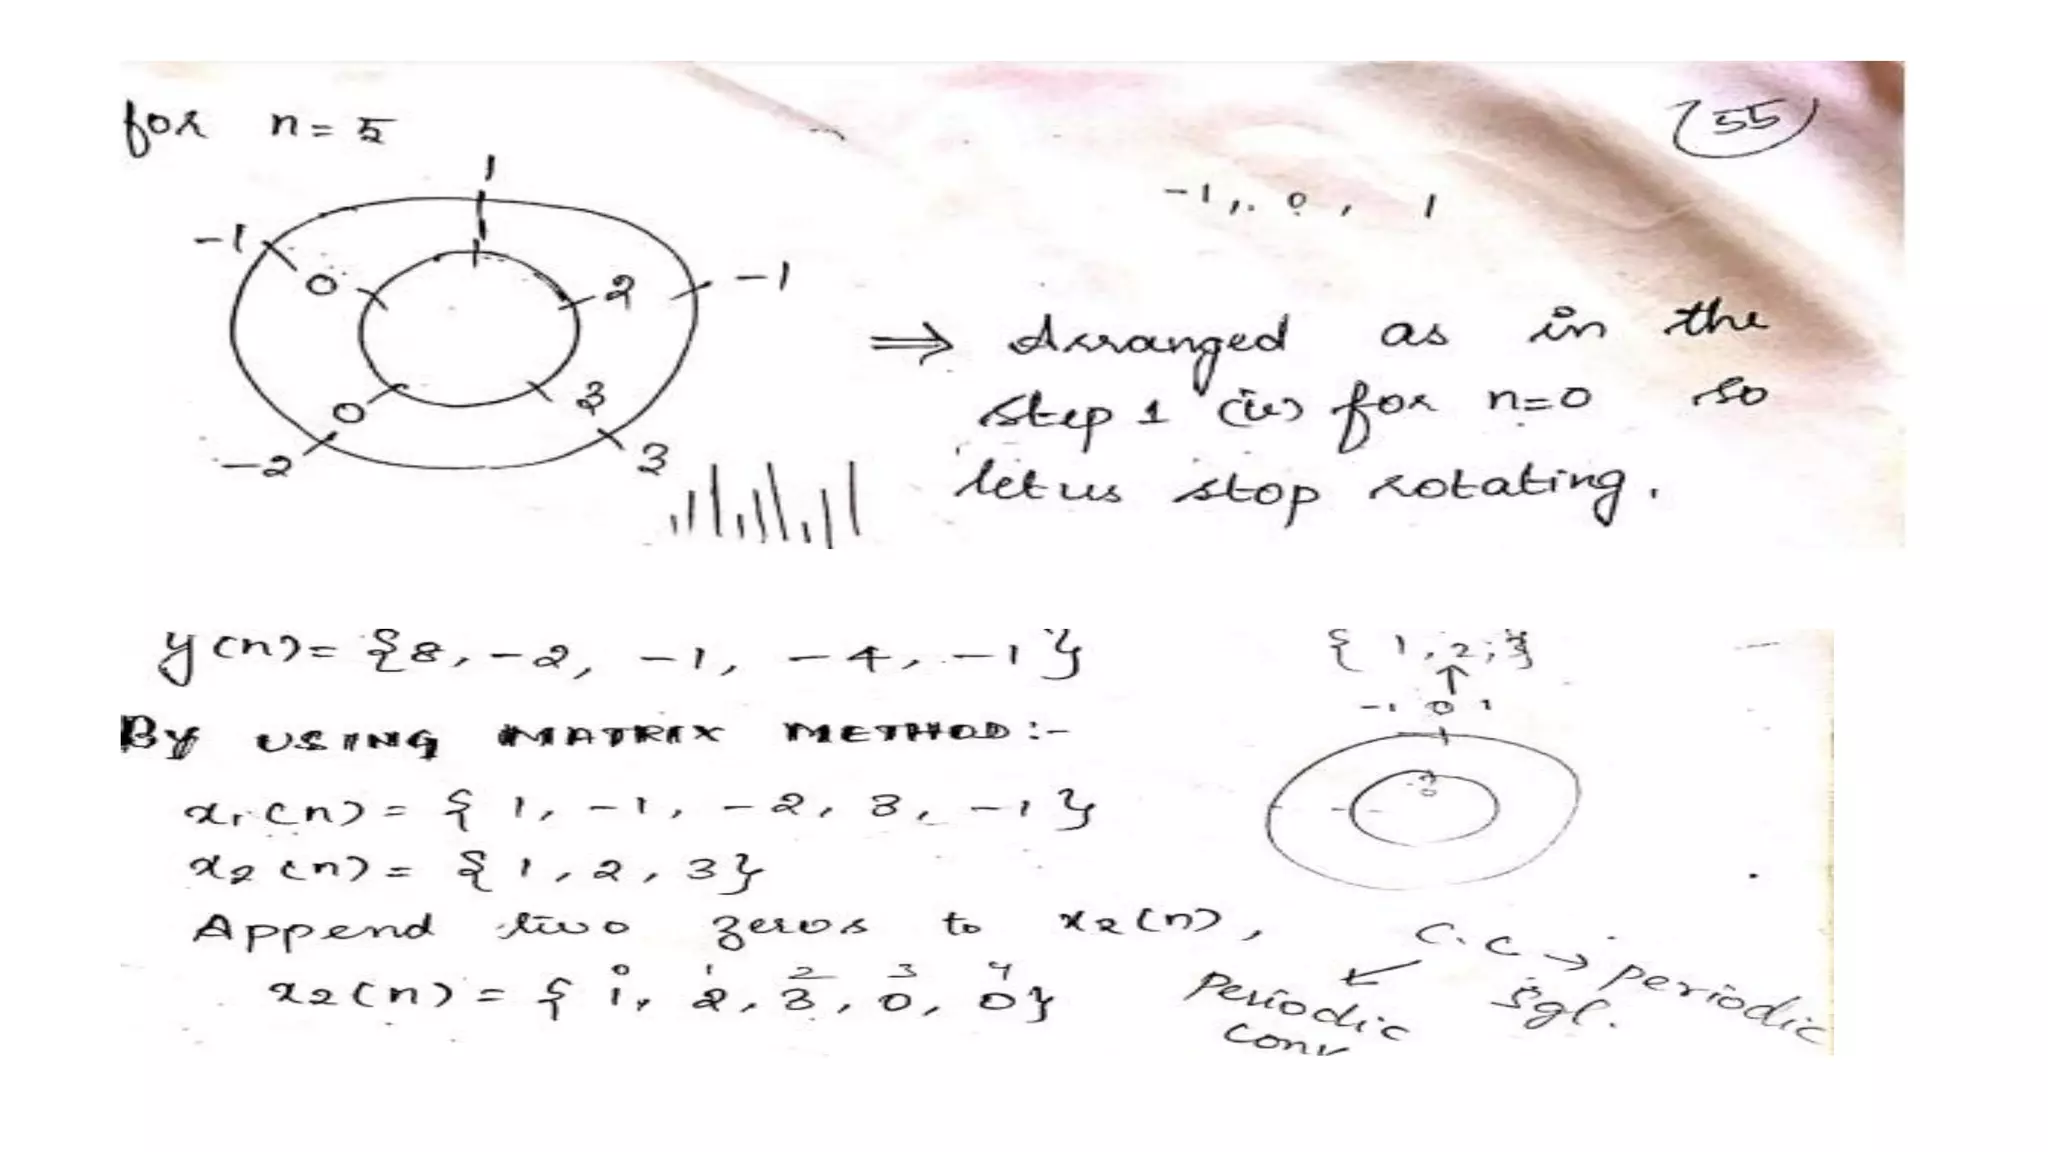 for n = 5
55
-1, 0, 1
1
-1
0
2
-1
0
3
-2
3
⇒ Arranged as in the
step 1 (iv) for n=0 so
let us stop rotating.
y(n) = {8, -2, -1, -4, -1}
{1, 2, 3}
↑
-1 0 1
By USING MATRIX METHOD :-
x₁(n) = {1, -1, -2, 3, -1}
x₂(n) = {1, 2, 3}
Append two zeros to x₂(n),
0 1 2 3 4
x₂(n) = {1, 2, 3, 0, 0}
C.C → periodic
sgl.
Periodic
conv